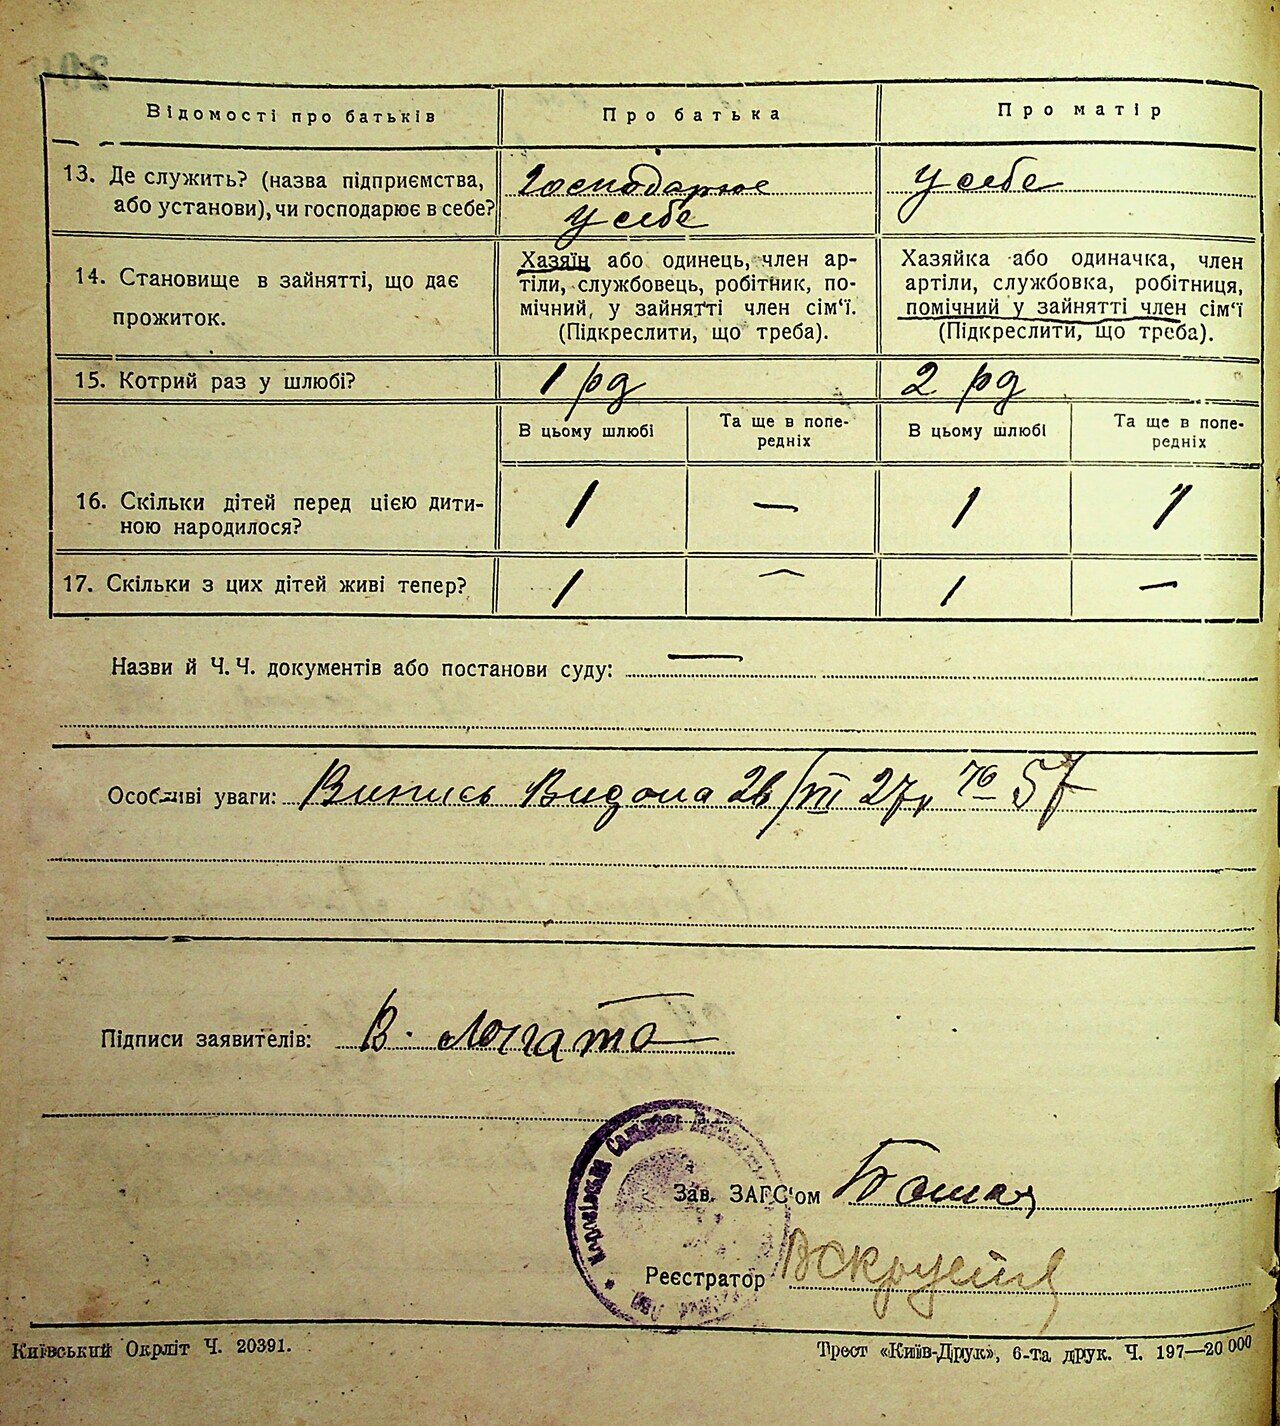 Відомості про батьків
Про батька
Про матір
13. Де служить? (назва підприємства,
або установи), чи господарює в себе?
Господарює
у себе
у себе
14. Становище в зайнятті, що дає
прожиток.
Хазяїн або одинець, член ар-
тіли, службовець, робітник, по-
мічний, у зайнятті член сім‘ї.
(Підкреслити, що треба).
Хазяйка або одиначка, член
артіли, службовка, робітниця,
помічний у зайнятті член сім‘ї
(Підкреслити, що треба).
15. Котрий раз у шлюбі?
1 рд
2 рд
В цьому шлюбі
Та ще в попе-
редніх
В цьому шлюбі
Та ще в попе-
редніх
16. Скільки дітей перед цією дити-
ною народилося?
1 — 1 1
17. Скільки з цих дітей живі тепер?
1 — 1 —
Назви й Ч. Ч. документів або постанови суду: —
Особливі уваги: Випись Видона 26/VII 27 № 57
Підписи заявителів: В. Лопата
Зав. ЗАГС‘ом
Реєстратор
Київський Окрліт Ч. 20391.
Трест «Київ-Друк», 6-та друк. Ч. 197—20 000